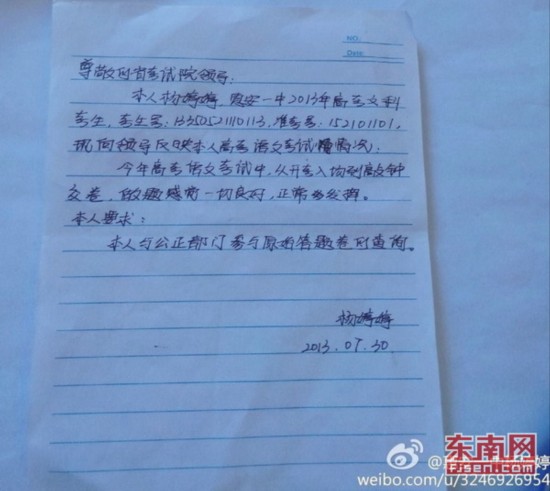 NO:
Date:
尊敬的省考试院领导:
本人杨婷婷,惠安一中2013年高考文科
考生,考生号:13350521110113,准考号:152101101,
现向领导反映本人高考语文考试情况:
今年高考语文考试中,从开考入场到敲钟
交卷,做题感觉一切良好,正常发挥。
本人要求:
本人与公正部门参与原始答题卷的查询。
杨婷婷
2013.07.30
东南网
FJSEN.COM
婷
weibo.com/u/3246926954